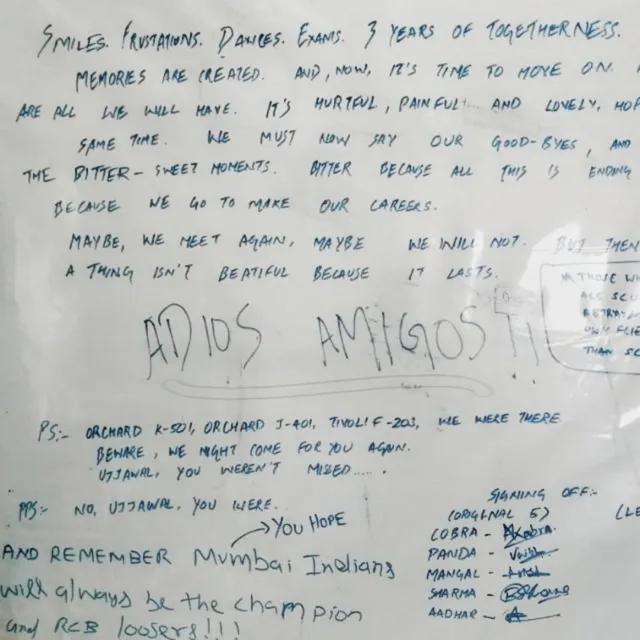 SMILES. FRUSTATIONS. DANCES. EXAMS. 3 YEARS OF TOGETHERNESS.
MEMORIES ARE CREATED. AND, NOW, IT'S TIME TO MOVE ON.
ARE ALL WE WILL HAVE. IT'S HURTFUL, PAINFUL... AND LOVELY, HOP
SAME TIME. WE MUST NOW SAY OUR GOOD-BYES, AND
THE BITTER-SWEET MOMENTS. BITTER BECAUSE ALL THIS IS ENDING
BECAUSE WE GO TO MAKE OUR CAREERS.
MAYBE, WE MEET AGAIN, MAYBE WE WILL NOT. BUT THEN
A THING ISN'T BEATIFUL BECAUSE IT LASTS.
THOSE WH
ARE SCI
RETRAC
OWN FLE
THAN SC
ADIOS AMIGOS!!
PS:- ORCHARD K-501, ORCHARD J-401, TIVOLI F-203, WE WERE THERE
BEWARE, WE MIGHT COME FOR YOU AGAIN.
UJJAWAL, YOU WEREN'T MISSED.....
PPS:- NO, UJJAWAL, YOU WERE..
YOU HOPE
AND REMEMBER Mumbai Indians
will always be the champion
and RCB loosers!!!
SIGNING OFF:-
(ORIGINAL 5)
(LE
COBRA - 
PANDA -
MANGAL -
SHARMA -
AADHAR -